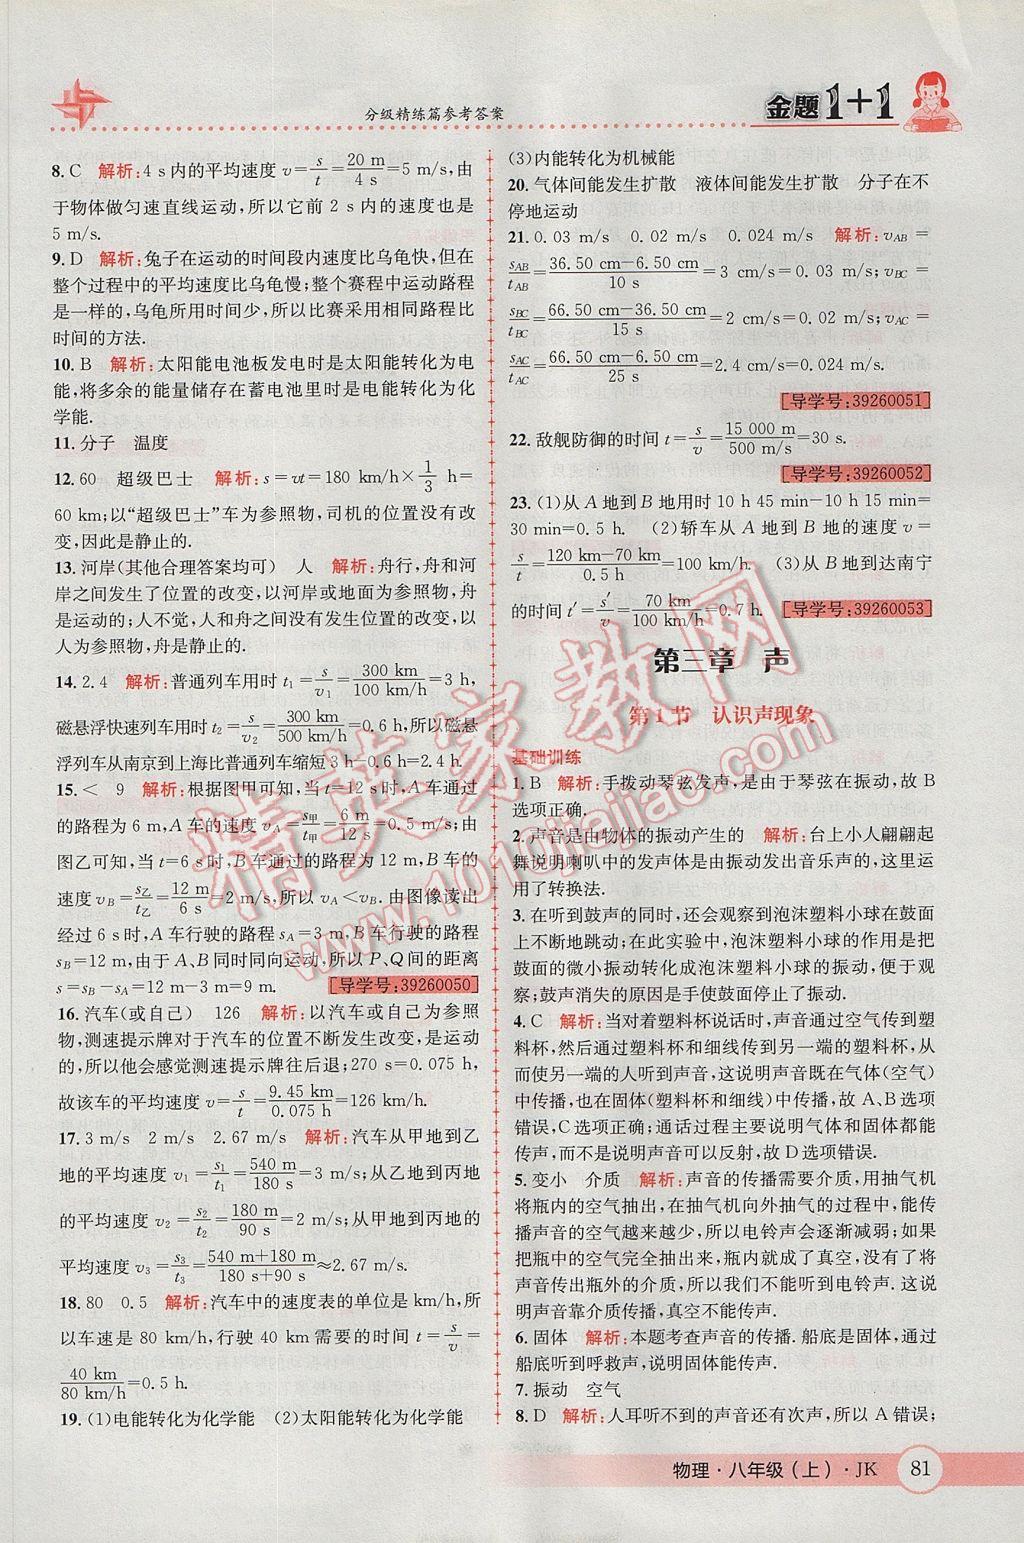 分级精练篇参考答案
金题1+1
8.C 解析:4 s内的平均速度v=s/t=20 m/4 s=5 m/s,由
于物体做匀速直线运动,所以它前2 s内的速度也是
5 m/s.
9.D 解析:兔子在运动的时间段内速度比乌龟快,但在
整个过程中的平均速度比乌龟慢;整个赛程中运动路程
是一样的,乌龟所用时间少,所以比赛采用相同路程比
时间的方法.
10.B 解析:太阳能电池板发电时是太阳能转化为电
能,将多余的能量储存在蓄电池里时是电能转化为化
学能.
11.分子 温度
12.60 超级巴士 解析:s=vt=180 km/h×1/3 h=
60 km;以“超级巴士”车为参照物,司机的位置没有改
变,因此是静止的.
13.河岸(其他合理答案均可) 人 解析:舟行,舟和河
岸之间发生了位置的改变,以河岸或地面为参照物,舟
是运动的;人不觉,人和舟之间没有发生位置的改变,以
人为参照物,舟是静止的.
14.2.4 解析:普通列车用时t1=s/v1=300 km/100 km/h=3 h,
磁悬浮快速列车用时t2=s/v2=300 km/500 km/h=0.6 h,所以磁悬
浮列车从南京到上海比普通列车缩短3 h-0.6 h=2.4 h.
15.< 9 解析:根据图甲可知,当t=12 s时,A车通过
的路程为6 m,A车的速度vA=s甲/t甲=6 m/12 s=0.5 m/s;由
图乙可知,当t=6 s时,B车通过的路程为12 m,B车的
速度vB=s乙/t乙=12 m/6 s=2 m/s,所以vA<vB.由图像读出
经过6 s时,A车行驶的路程sA=3 m,B车行驶的路程
sB=12 m,由于A、B同时同向运动,所以P、Q间的距离
s=sB-sA=12 m-3 m=9 m. [导学号:39260050]
16.汽车(或自己) 126 解析:以汽车或自己为参照
物,测速提示牌对于汽车的位置不断发生改变,是运动
的;所以他会感觉测速提示牌往后退;270 s=0.075 h,
故该车的平均速度v=s/t=9.45 km/0.075 h=126 km/h.
17.3 m/s 2 m/s 2.67 m/s 解析:汽车从甲地到乙
地的平均速度v1=s1/t1=540 m/180 s=3 m/s;从乙地到丙地
的平均速度v2=s2/t2=180 m/90 s=2 m/s;从甲地到丙地的
平均速度v3=s3/t3=540 m+180 m/180 s+90 s≈2.67 m/s.
18.80 0.5 解析:汽车中的速度表的单位是km/h,所
以车速是80 km/h,行驶40 km需要的时间t=s/v=
40 km/80 km/h=0.5 h.
19.(1)电能转化为化学能 (2)太阳能转化为化学能
(3)内能转化为机械能
20.气体间能发生扩散 液体间能发生扩散 分子在不
停地运动
21.0.03 m/s 0.02 m/s 0.024 m/s 解析:vAB=
sAB/tAB=36.50 cm-6.50 cm/10 s=3 cm/s=0.03 m/s;vBC=
sBC/tBC=66.50 cm-36.50 cm/15 s=2 cm/s=0.02 m/s;vAC=
sAC/tAC=66.50 cm-6.50 cm/25 s=2.4 cm/s=0.024 m/s.
[导学号:39260051]
22.敌舰防御的时间t=s/v=15 000 m/500 m/s=30 s.
[导学号:39260052]
23.(1)从A地到B地用时10 h 45 min-10 h 15 min=
30 min=0.5 h. (2)轿车从A地到B地的速度v=
s/t=120 km-70 km/0.5 h=100 km/h. (3)从B地到达南宁
的时间t′=s′/v=70 km/100 km/h=0.7 h. [导学号:39260053]
第三章 声
第1节 认识声现象
基础训练
1.B 解析:手拨动琴弦发声,是由于琴弦在振动,故B
选项正确.
2.声音是由物体的振动产生的 解析:台上小人翩翩起
舞说明喇叭中的发声体是由振动发出音乐声的,这里运
用了转换法.
3.在听到鼓声的同时,还会观察到泡沫塑料小球在鼓面
上不断地跳动;在此实验中,泡沫塑料小球的作用是把
鼓面的微小振动转化成泡沫塑料小球的振动,便于观
察;鼓声消失的原因是手使鼓面停止了振动.
4.C 解析:当对着塑料杯说话时,声音通过空气传到塑
料杯,然后通过塑料杯和细线传到另一端的塑料杯,从
而使另一端的人听到声音,这说明声音既能在气体(空气)
中传播,也能在固体(塑料杯和细线)中传播,故A、B选项
错误,C选项正确;通话过程主要说明气体和固体都能
传声,而不是说明声音可以反射,故D选项错误.
5.变小 介质 解析:声音的传播需要介质,用抽气机
将瓶内的空气抽出,在抽气机向外抽气的过程中,能传
播声音的空气越来越少,所以电铃声会逐渐减弱;如果
把瓶中的空气完全抽出来,瓶内就成了真空,没有了将
声音传出瓶外的介质,所以我们不能听到电铃声.这说
明声音靠介质传播,真空不能传声.
6.固体 解析:本题考查声音的传播.船底是固体,通过
船底听到呼救声,说明固体能传声.
7.振动 空气
8.D 解析:人耳听不到的声音还有次声,所以A错误;
物理·八年级(上)·JK 81
精英家教网
www.1010jiajiao.com